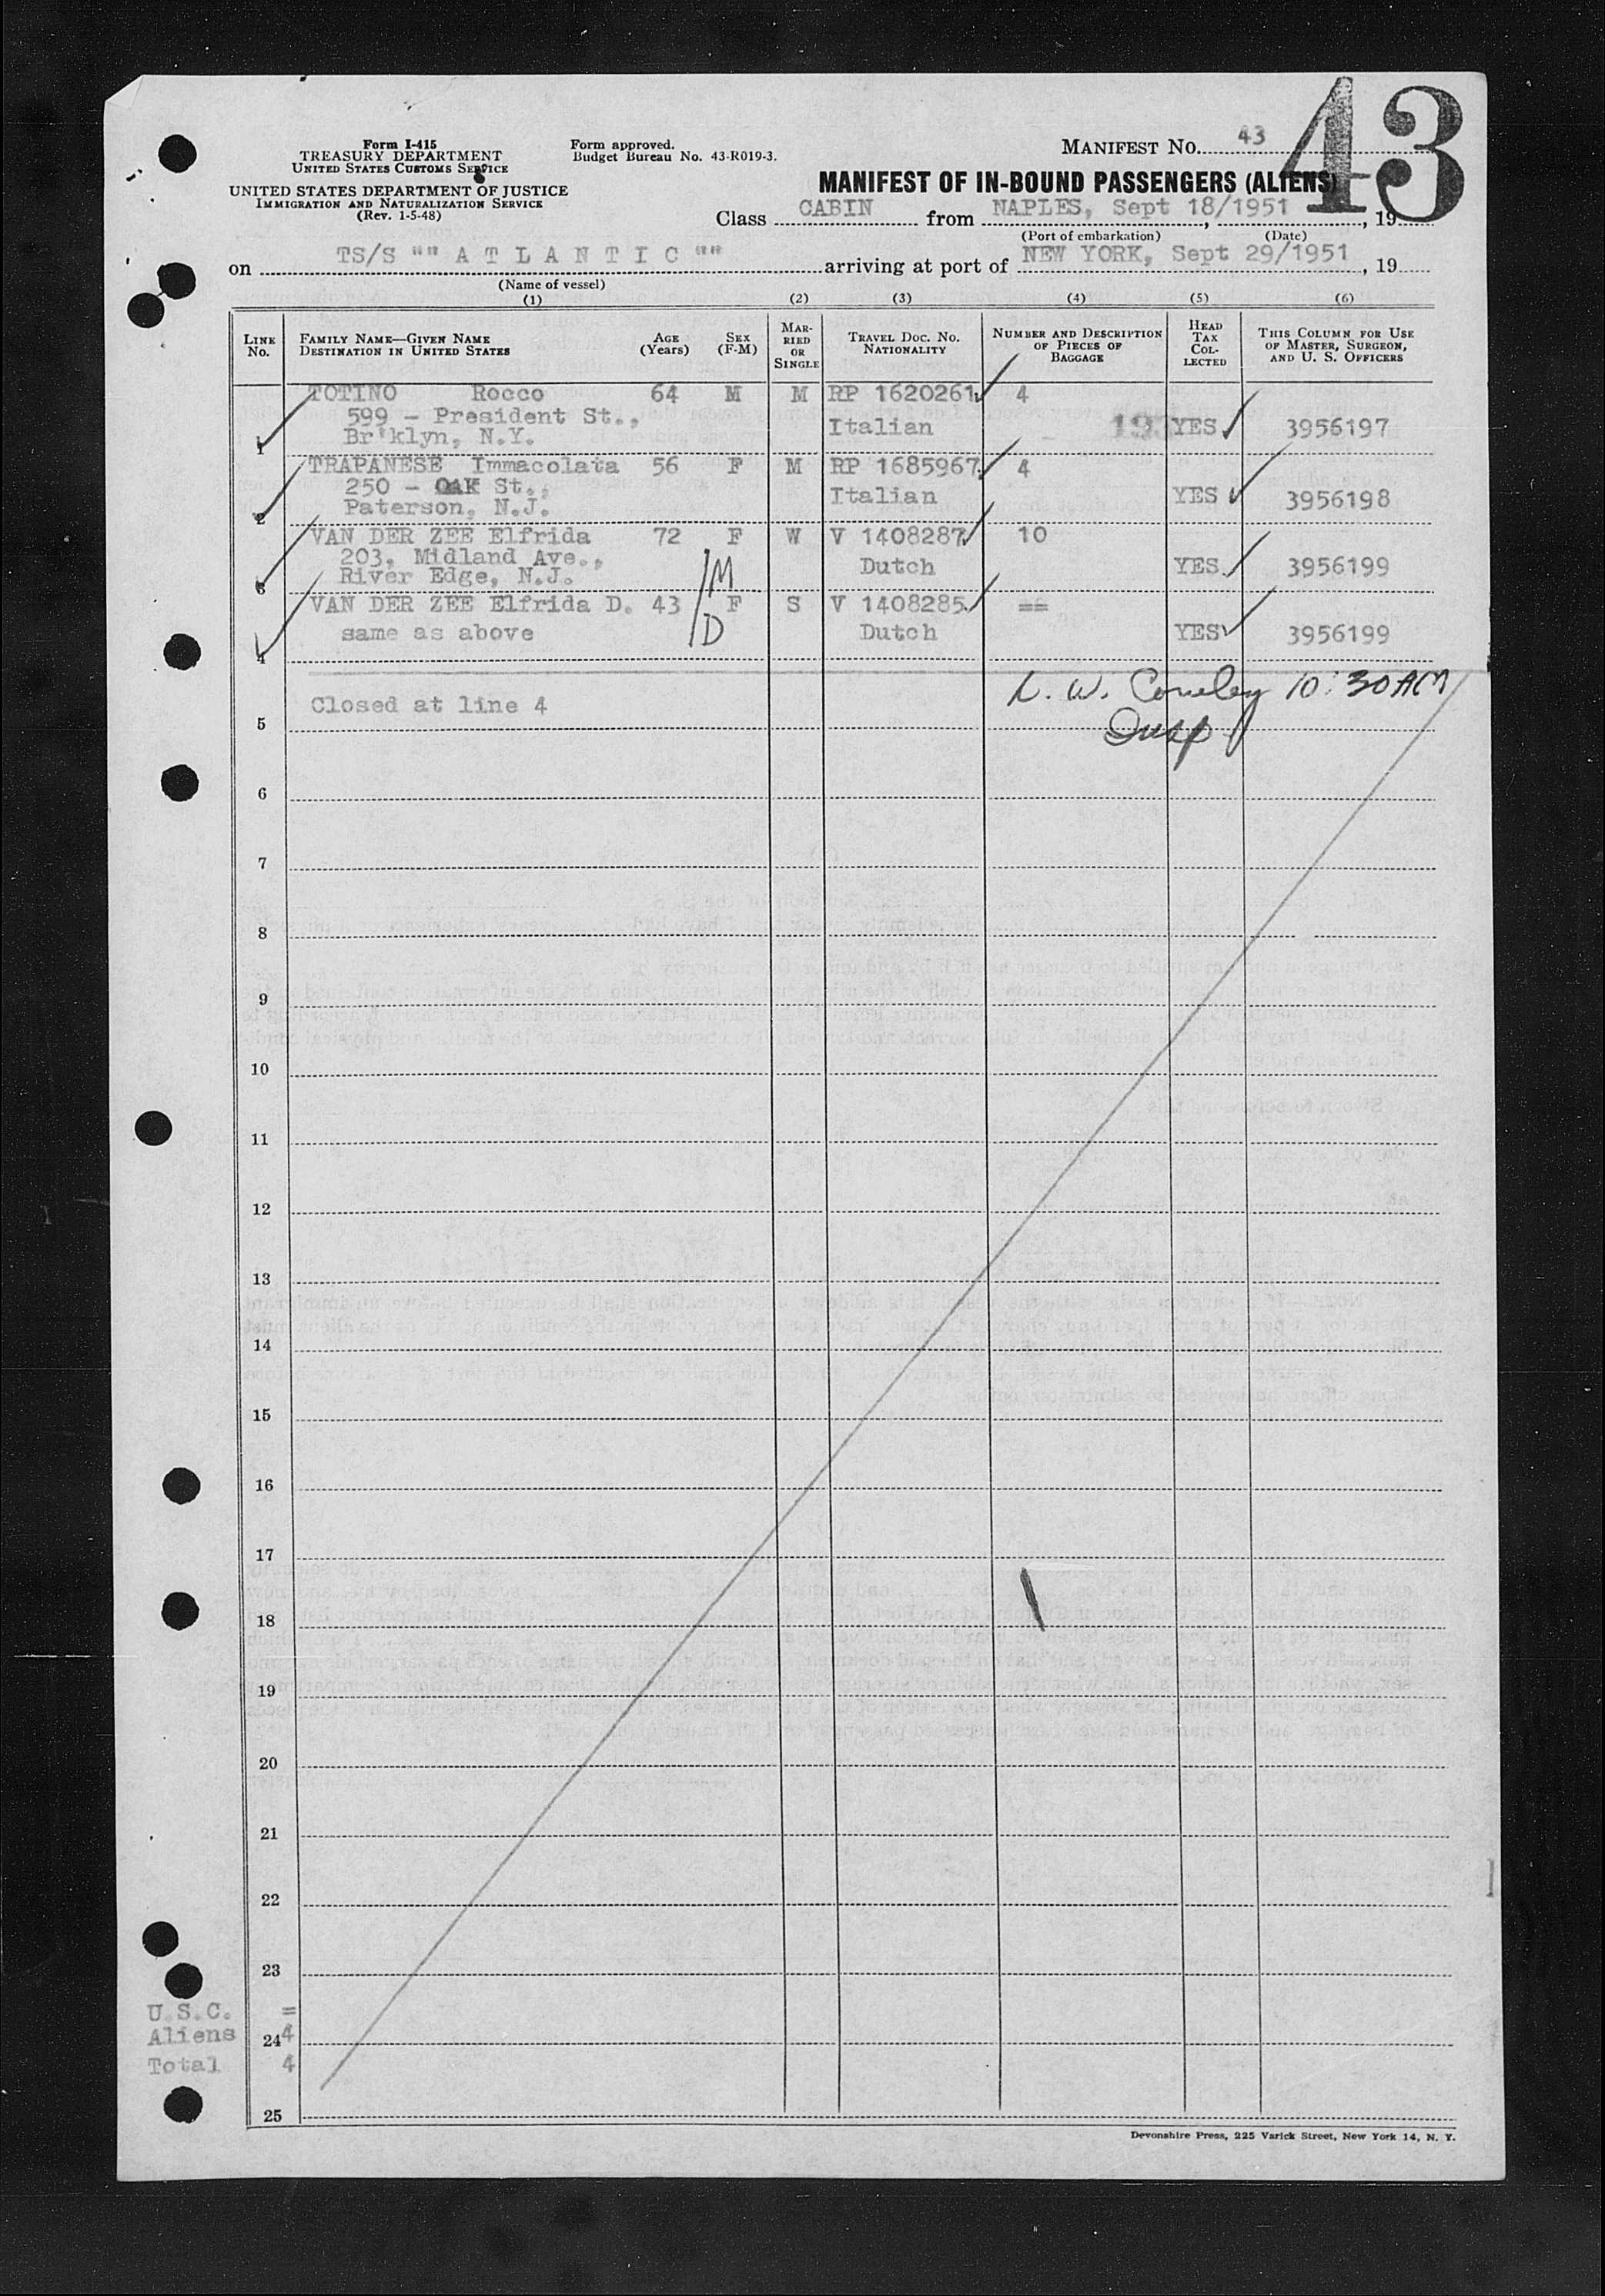 43
Form I-415
TREASURY DEPARTMENT
UNITED STATES CUSTOMS SERVICE
UNITED STATES DEPARTMENT OF JUSTICE
IMMIGRATION AND NATURALIZATION SERVICE
(Rev. 1-5-48)
Form approved.
Budget Bureau No. 43-R019-3.
MANIFEST NO. 43
MANIFEST OF IN-BOUND PASSENGERS (ALIENS)
Class CABIN from NAPLES, Sept 18/1951, 19
(Port of embarkation) (Date)
on TS/S "" A T L A N T I C "" arriving at port of NEW YORK, Sept 29/1951, 19
(Name of vessel)
(1) (2) (3) (4) (5) (6)
LINE No. FAMILY NAME—GIVEN NAME DESTINATION IN UNITED STATES AGE (Years) SEX (F-M) MARRIED OR SINGLE TRAVEL DOC. NO. NATIONALITY NUMBER AND DESCRIPTION OF PIECES OF BAGGAGE HEAD TAX COLLECTED THIS COLUMN FOR USE OF MASTER, SURGEON, AND U. S. OFFICERS
TOTINO Rocco 64 M M RP 1620261 4
599 - President St.,
Italian YES 3956197
1 Br'klyn, N.Y.
TRAPANESE Immacolata 56 F M RP 1685967 4
250 - OAK St.,
Italian YES 3956198
2 Paterson, N.J.
VAN DER ZEE Elfrida 72 F W V 1408287 10
203, Midland Ave.,
Dutch YES 3956199
3 River Edge, N.J. M
VAN DER ZEE Elfrida D. 43 F S V 1408285 ==
same as above D Dutch YES 3956199
4
L. W. Coneley 10:30 AM
Closed at line 4
Insp
5
6
7
8
9
10
11
12
13
14
15
16
17
18
19
20
21
22
23
U.S.C. =
Aliens 4
24
Total 4
25
Devonshire Press, 225 Varick Street, New York 14, N. Y.